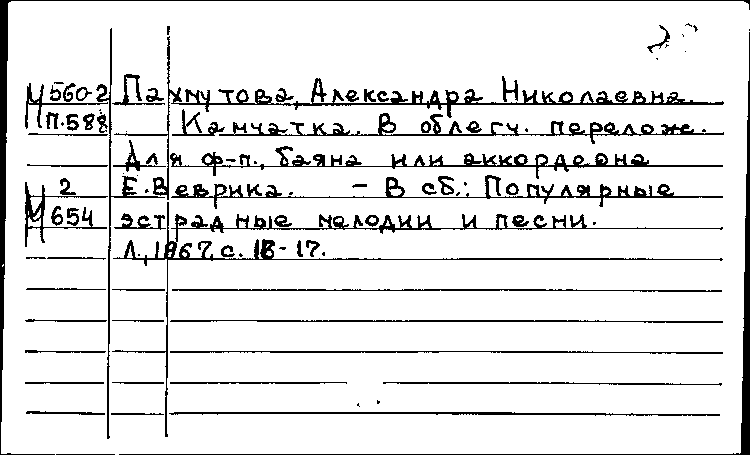 М 560-2 Пахмутова, Александра Николаевна.
П-588 Камчатка. В облегч. перелож.
для ф-п., баяна или аккордеона
2 Е.Веврика. – В сб.: Популярные
М 654 эстрадные мелодии и песни.
Л., 1967, с. 16-17.